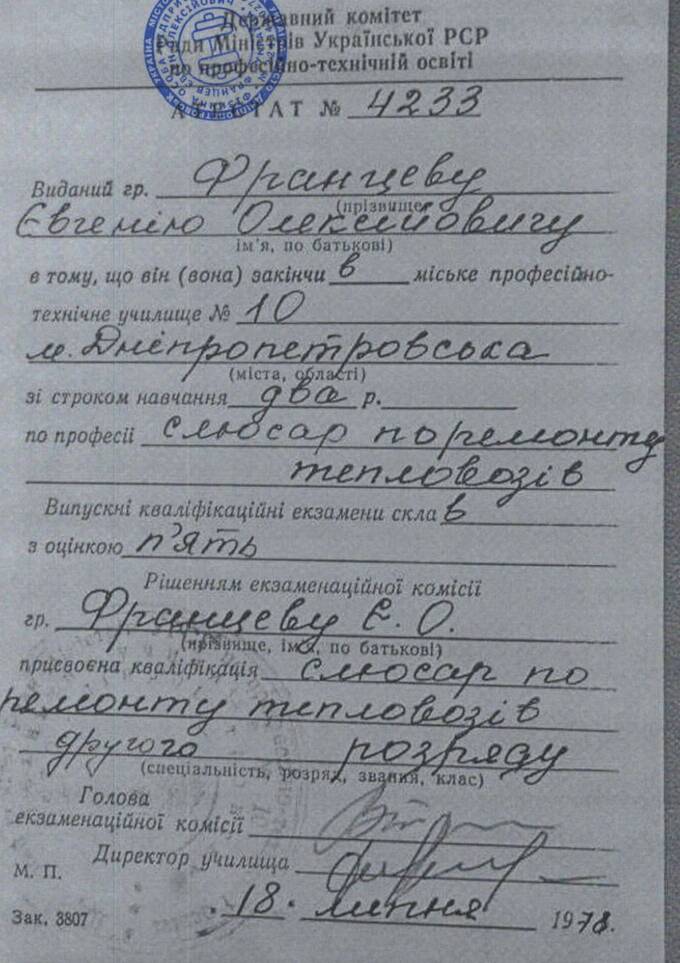 Державний комітет
Ради Міністрів Української РСР
по професійно-технічній освіті
АТЕСТАТ № 4233
Виданий гр. Францеву
(прізвище
Євгенію Олексійовичу
ім'я, по батькові)
в тому, що він (вона) закінчив міське професійно-
технічне училище № 10
м. Дніпропетровська
(міста, області)
зі строком навчання два р.
по професії слюсар по ремонту
тепловозів
Випускні кваліфікаційні екзамени склав
з оцінкою п'ять
Рішенням екзаменаційної комісії
гр. Францеву Є. О.
(прізвище, ім'я, по батькові)
присвоєна кваліфікація слюсар по
ремонту тепловозів
другого розряду
(спеціальність, розряд, звання, клас)
Голова
екзаменаційної комісії
Директор училища
М. П.
18 липня 1978.
Зак. 3807